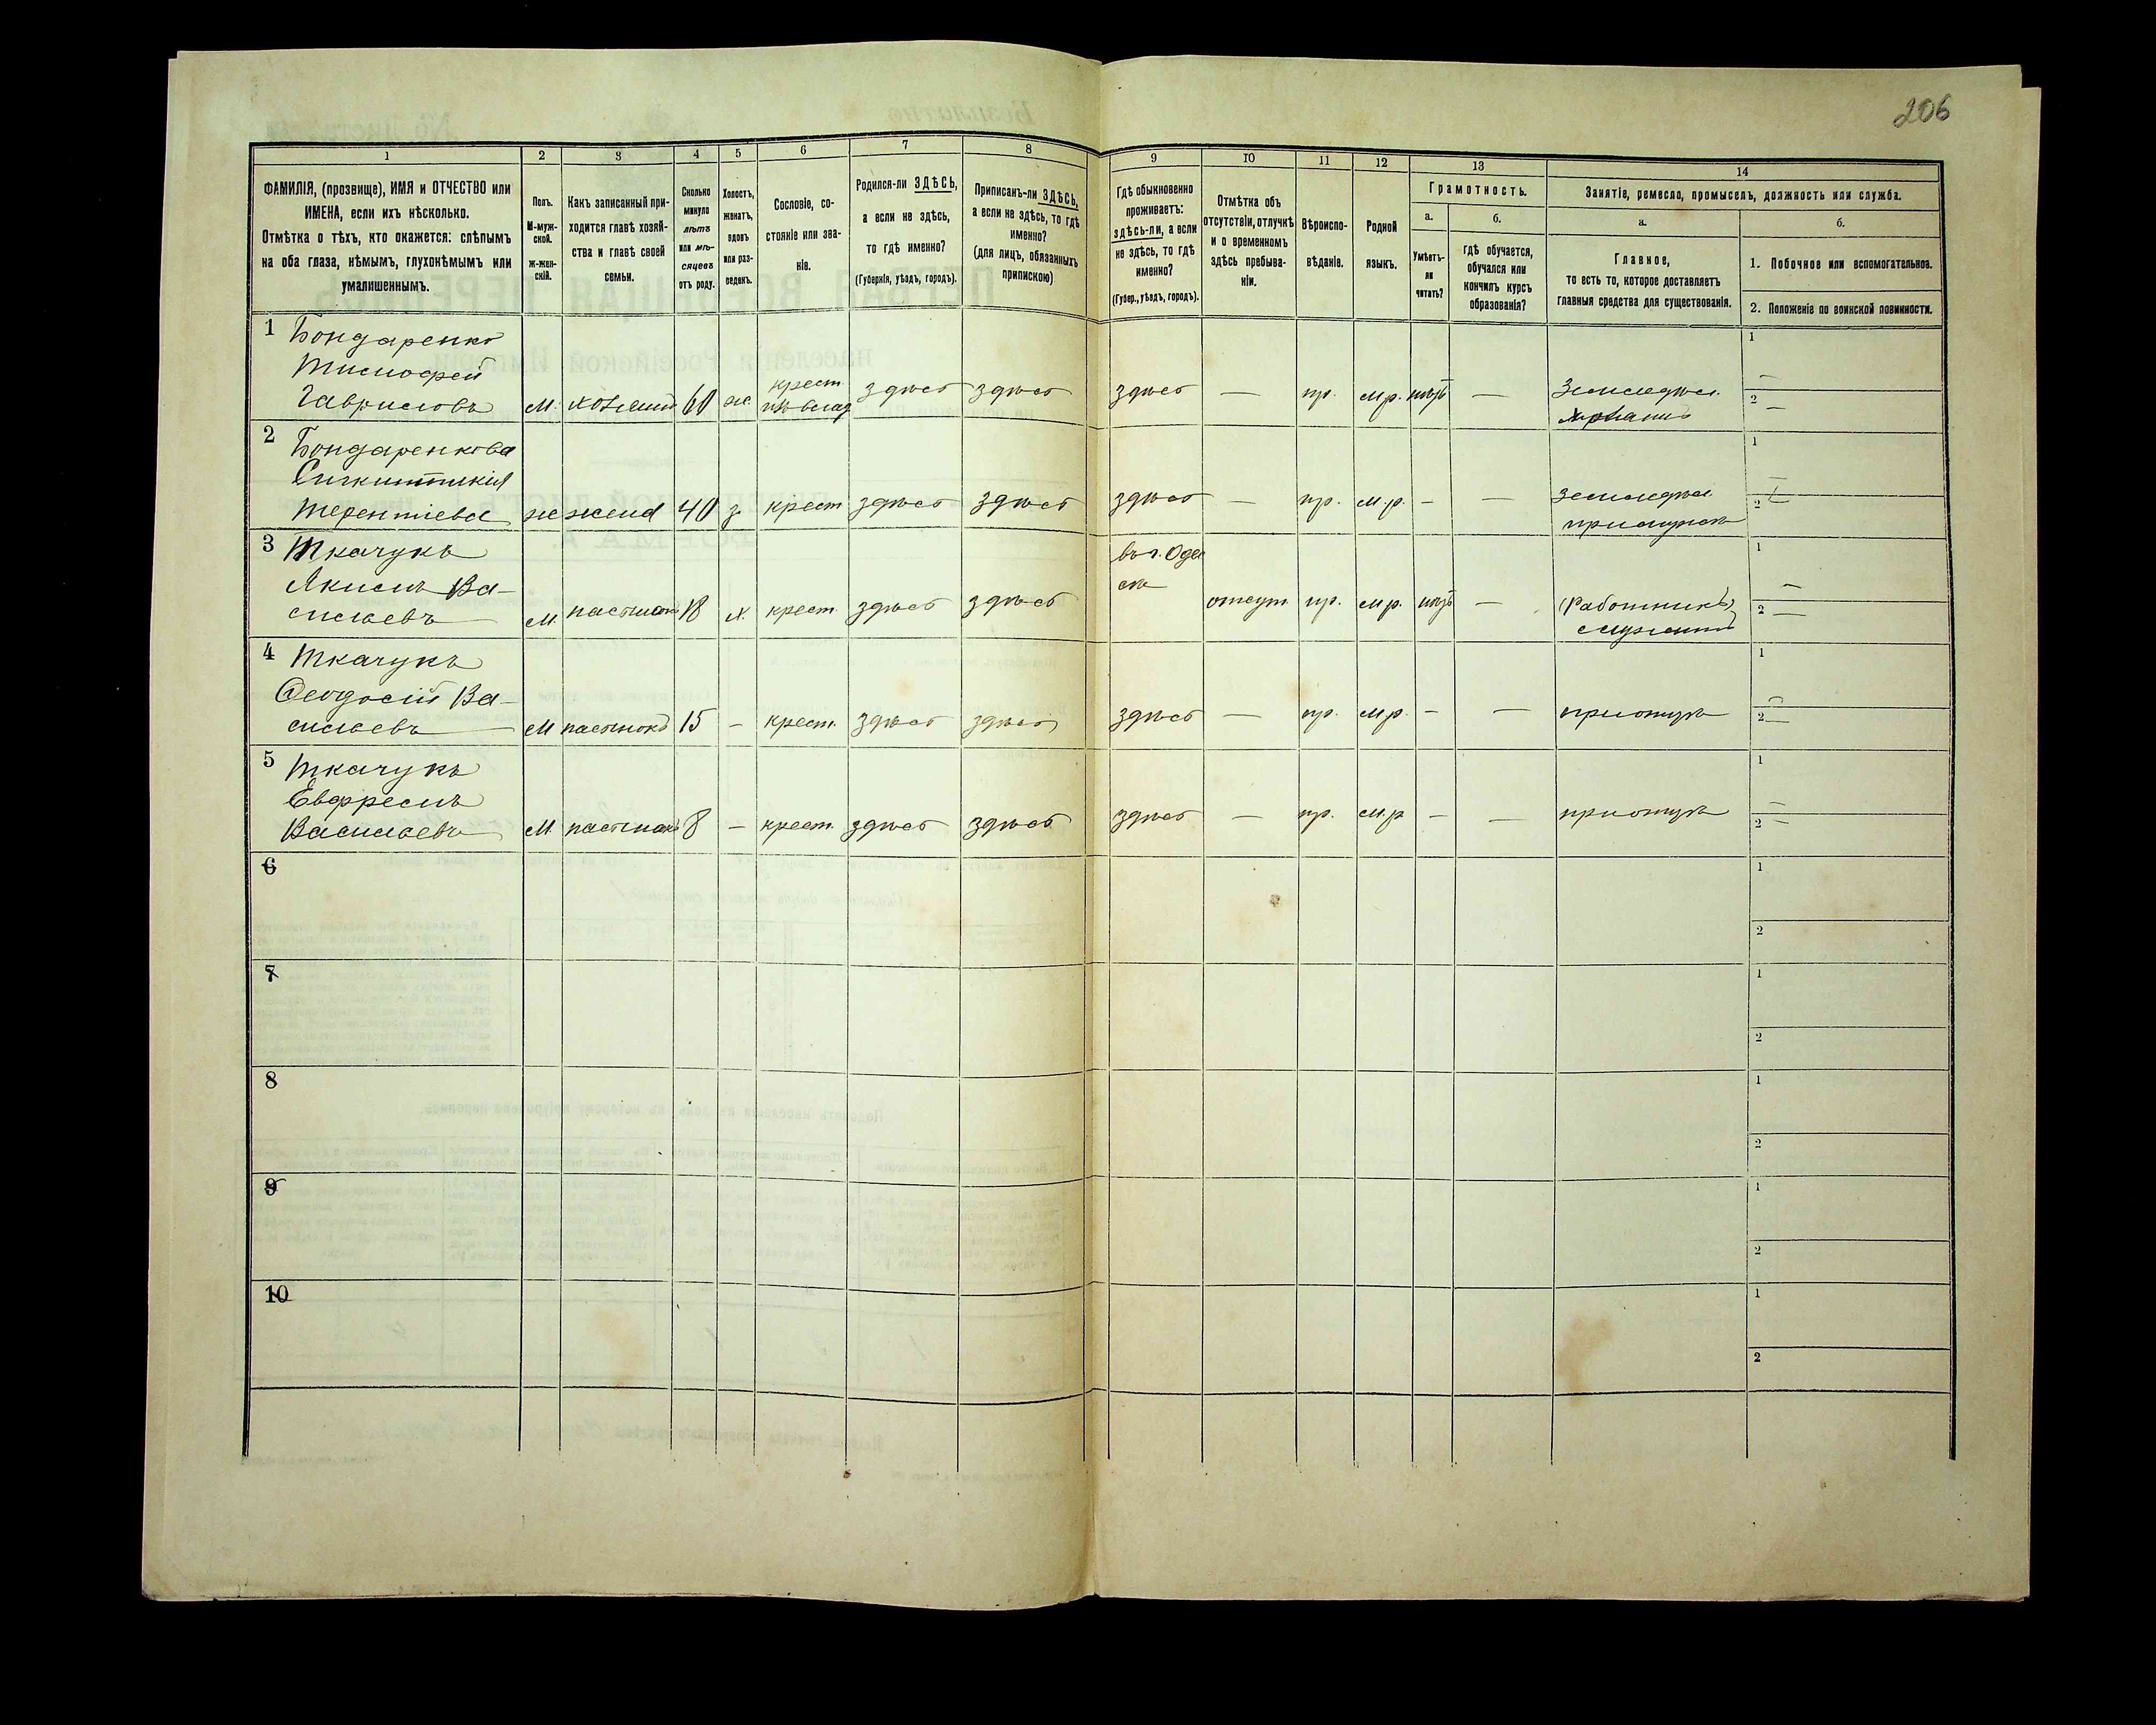 206
1 2 3 4 5 6 7 8 9 10 11 12 13 14
ФАМИЛІЯ, (прозвище), ИМЯ и ОТЧЕСТВО или
ИМЕНА, если ихъ нѣсколько.
Отмѣтка о тѣхъ, кто окажется: слѣпымъ
на оба глаза, нѣмымъ, глухонѣмымъ или
умалишеннымъ.
Полъ.
М-муж-
ской.
Ж-жен-
скій.
Какъ записанный при-
ходится главѣ хозяй-
ства и главѣ своей
семьи.
Сколько
минуло
лѣтъ
или мѣ-
сяцевъ
отъ роду.
Холостъ,
женатъ,
вдовъ
или раз-
веденъ.
Сословіе, со-
стояніе или зва-
ніе.
Родился-ли ЗДѢСЬ,
а если не здѣсь,
то гдѣ именно?
(Губернія, уѣздъ, городъ).
Приписанъ-ли ЗДѢСЬ,
а если не здѣсь, то гдѣ
именно?
(для лицъ, обязанныхъ
припискою)
Гдѣ обыкновенно
проживаетъ:
здѣсь-ли, а если
не здѣсь, то гдѣ
именно?
(Губер., уѣздъ, городъ).
Отмѣтка объ
отсутствіи, отлучкѣ
и о временномъ
здѣсь пребыва-
ніи.
Вѣроиспо-
вѣданіе.
Родной
языкъ.
Грамотность.
а.
Умѣетъ-
ли
читать?
б.
Гдѣ обучается,
обучался или
кончилъ курсъ
образованія?
Занятіе, ремесло, промыселъ, должность или служба.
а.
Главное,
то есть то, которое доставляетъ
главныя средства для существованія.
б.
1. Побочное или вспомогательное.
2. Положеніе по воинской повинности.
1 Бондаренко
Тимофей
Гавриловъ М. хозяинъ 60 ж. крест. здѣсь здѣсь здѣсь — пр. м.р. — земледѣл.
хозяинъ
1 —
2 —
2 Бондаренкова
Терентіева ж жена 40 з. крест здѣсь здѣсь здѣсь — пр. м.р. — — земледѣл.
1 —
2
3 Ткачукъ
Якимъ Ва-
сильевъ М. пасынокъ 18 х. крест. здѣсь здѣсь въ г. Оде
отсут. пр. м.р. — (Работникъ)
1 —
2 —
4 Ткачукъ
Ѳеодосій Ва-
сильевъ М пасынокъ 15 — крест. здѣсь здѣсь здѣсь — пр. м.р. — — при отцѣ
1 —
2 —
5 Ткачукъ
Евфремъ
Васильевъ М. пасынокъ 8 — крест. здѣсь здѣсь здѣсь — пр. м.р — — при отцѣ
1 —
2 —
6 1
2
7 1
2
8 1
2
9 1
2
10 1
2